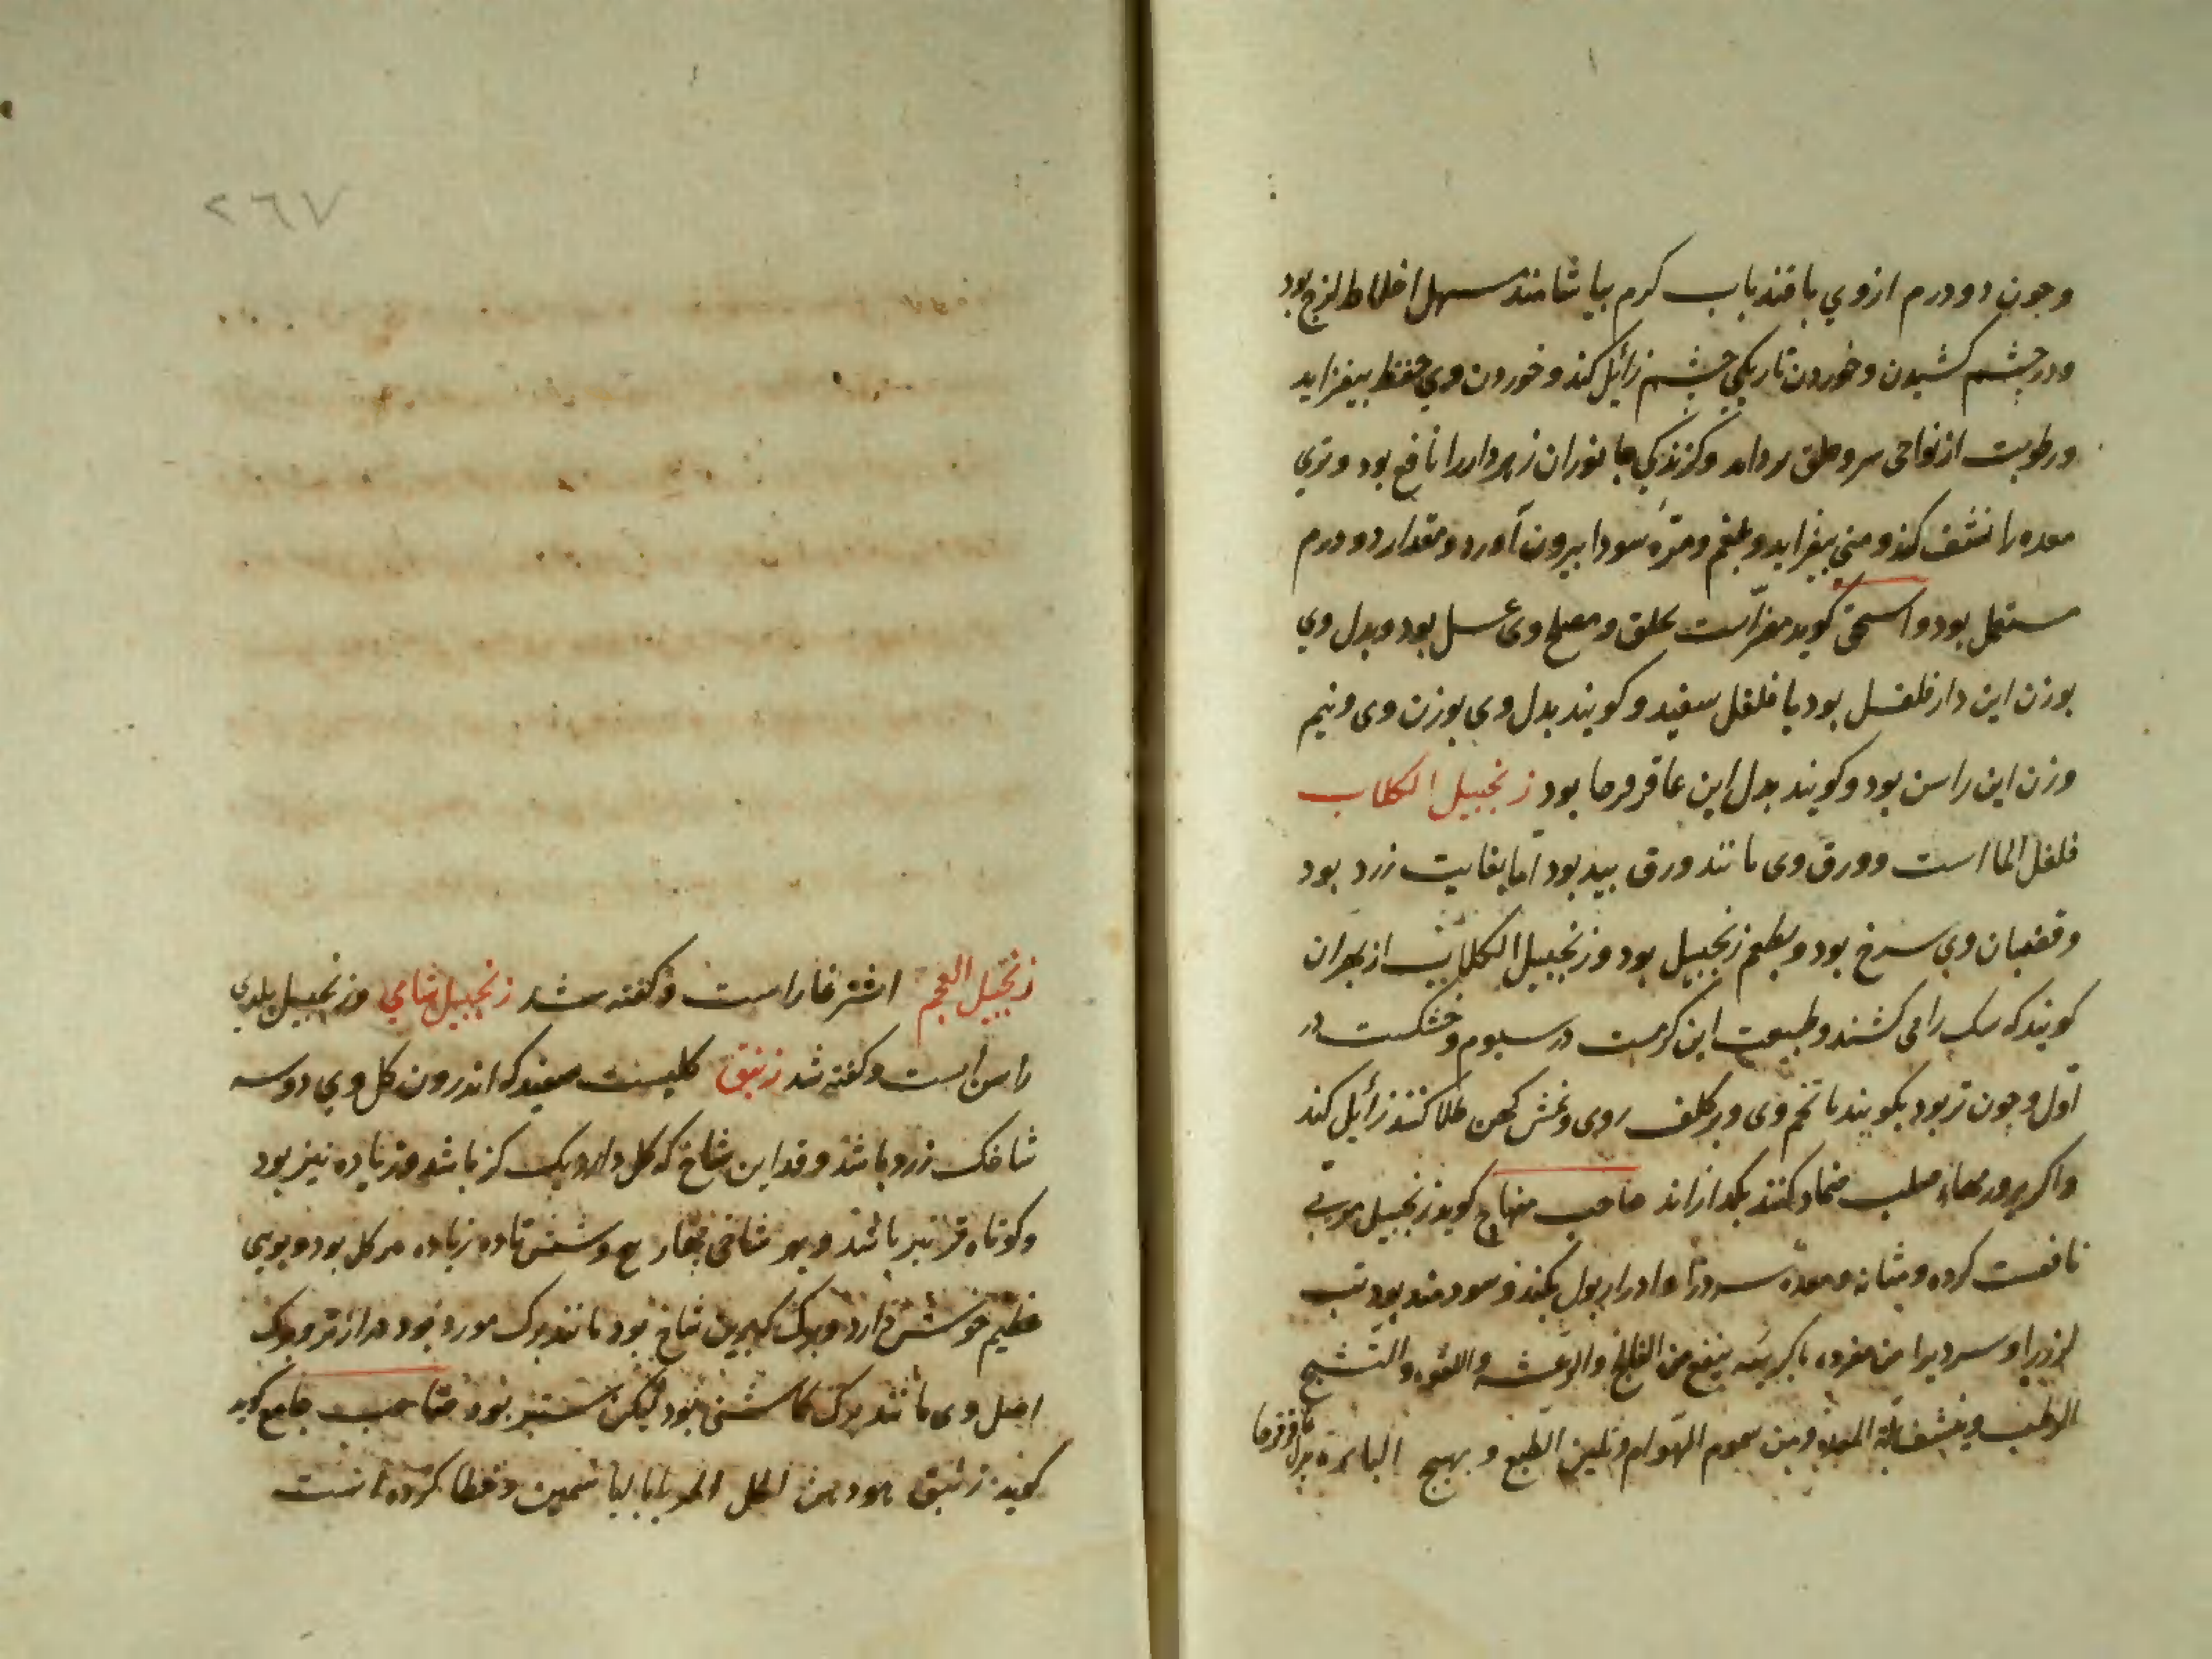 وجون دو درم ازوي باقند باب كرم بياشامند مسهل اخلاط لزج بود
ودرچشم كشيدن وخوردن تاريكي چشم زائل كند وخوردن وي حفظ بيفزايد
ورطوبت از نواحي سر وحلق بردايد وكزندكي جانوران زهردار را نافع بود وتري
معده را نشف كند ومني بيفزايد وبلغم ومرّه سودا بيرون آورد ومقدار دو درم
مستعمل بود واسحق كويد مضر است بحلق ومصلح وى عسل بود وبدل وي
بوزن اين دار فلفل بود يا فلفل سفيد وكويند بدل وي بوزن وى ونيم
وزن اين راسن بود وكويند بدل اين عاقرقرحا بود زنجبيل الكلاب
فلفل الما است وورق وى مانند ورق بيد بود اما بغايت زرد بود
وقضبان وي سرخ بود وبطعم زنجبيل بود وزنجبيل الكلاب از بهر ان
كويند كه سك را مى كشند وطبيعت اين كرمست در سيوم وخشكست در
اول وجون تر بود بكويند با تخم وى وبر كلف روى ونمش كهن طلا كنند زائل كند
واكر بر ورمهاء صلب ضماد كنند بكدازاند صاحب منهاج كويد زنجبيل مربى
نافعست كرده ومثانه ومعده سرد را وادرار بول بكند وسودمند بود تب
لرز را وسردى را من مفرده باكريته ينفع من الفالج والرعشه واللقوه والتشنج
الرطب وينشف بلة المعده ومن سموم الهوام وتلين الطبع وبهيج الباه بدل عاقرقرحا
٢٦٧
زنجبيل العجم اشترغاز است وكفته شد زنجبيل شامي وزنجبيل بلدي
راسن است وكفته شد زنبق كليست سفيد كه اندرون كل وي دو سه
شاخك زرد باشد وقد اين شاخ كه كل دارد يك كز باشد وزياده نيز بود
وكوتاه تر نيز باشد وبر شاخى وشش تا ده زياده كل بود وبوى
عظيم خوش دارد وبرك كبرين شاخ بود مانند برك مورد بود درازتر وبرك
اصل وى مانند برك بود ليكن ستبر بود صاحب جامع كويد
كويد زنبق دهن الحل المربا باليا سمين وخطا كرده است